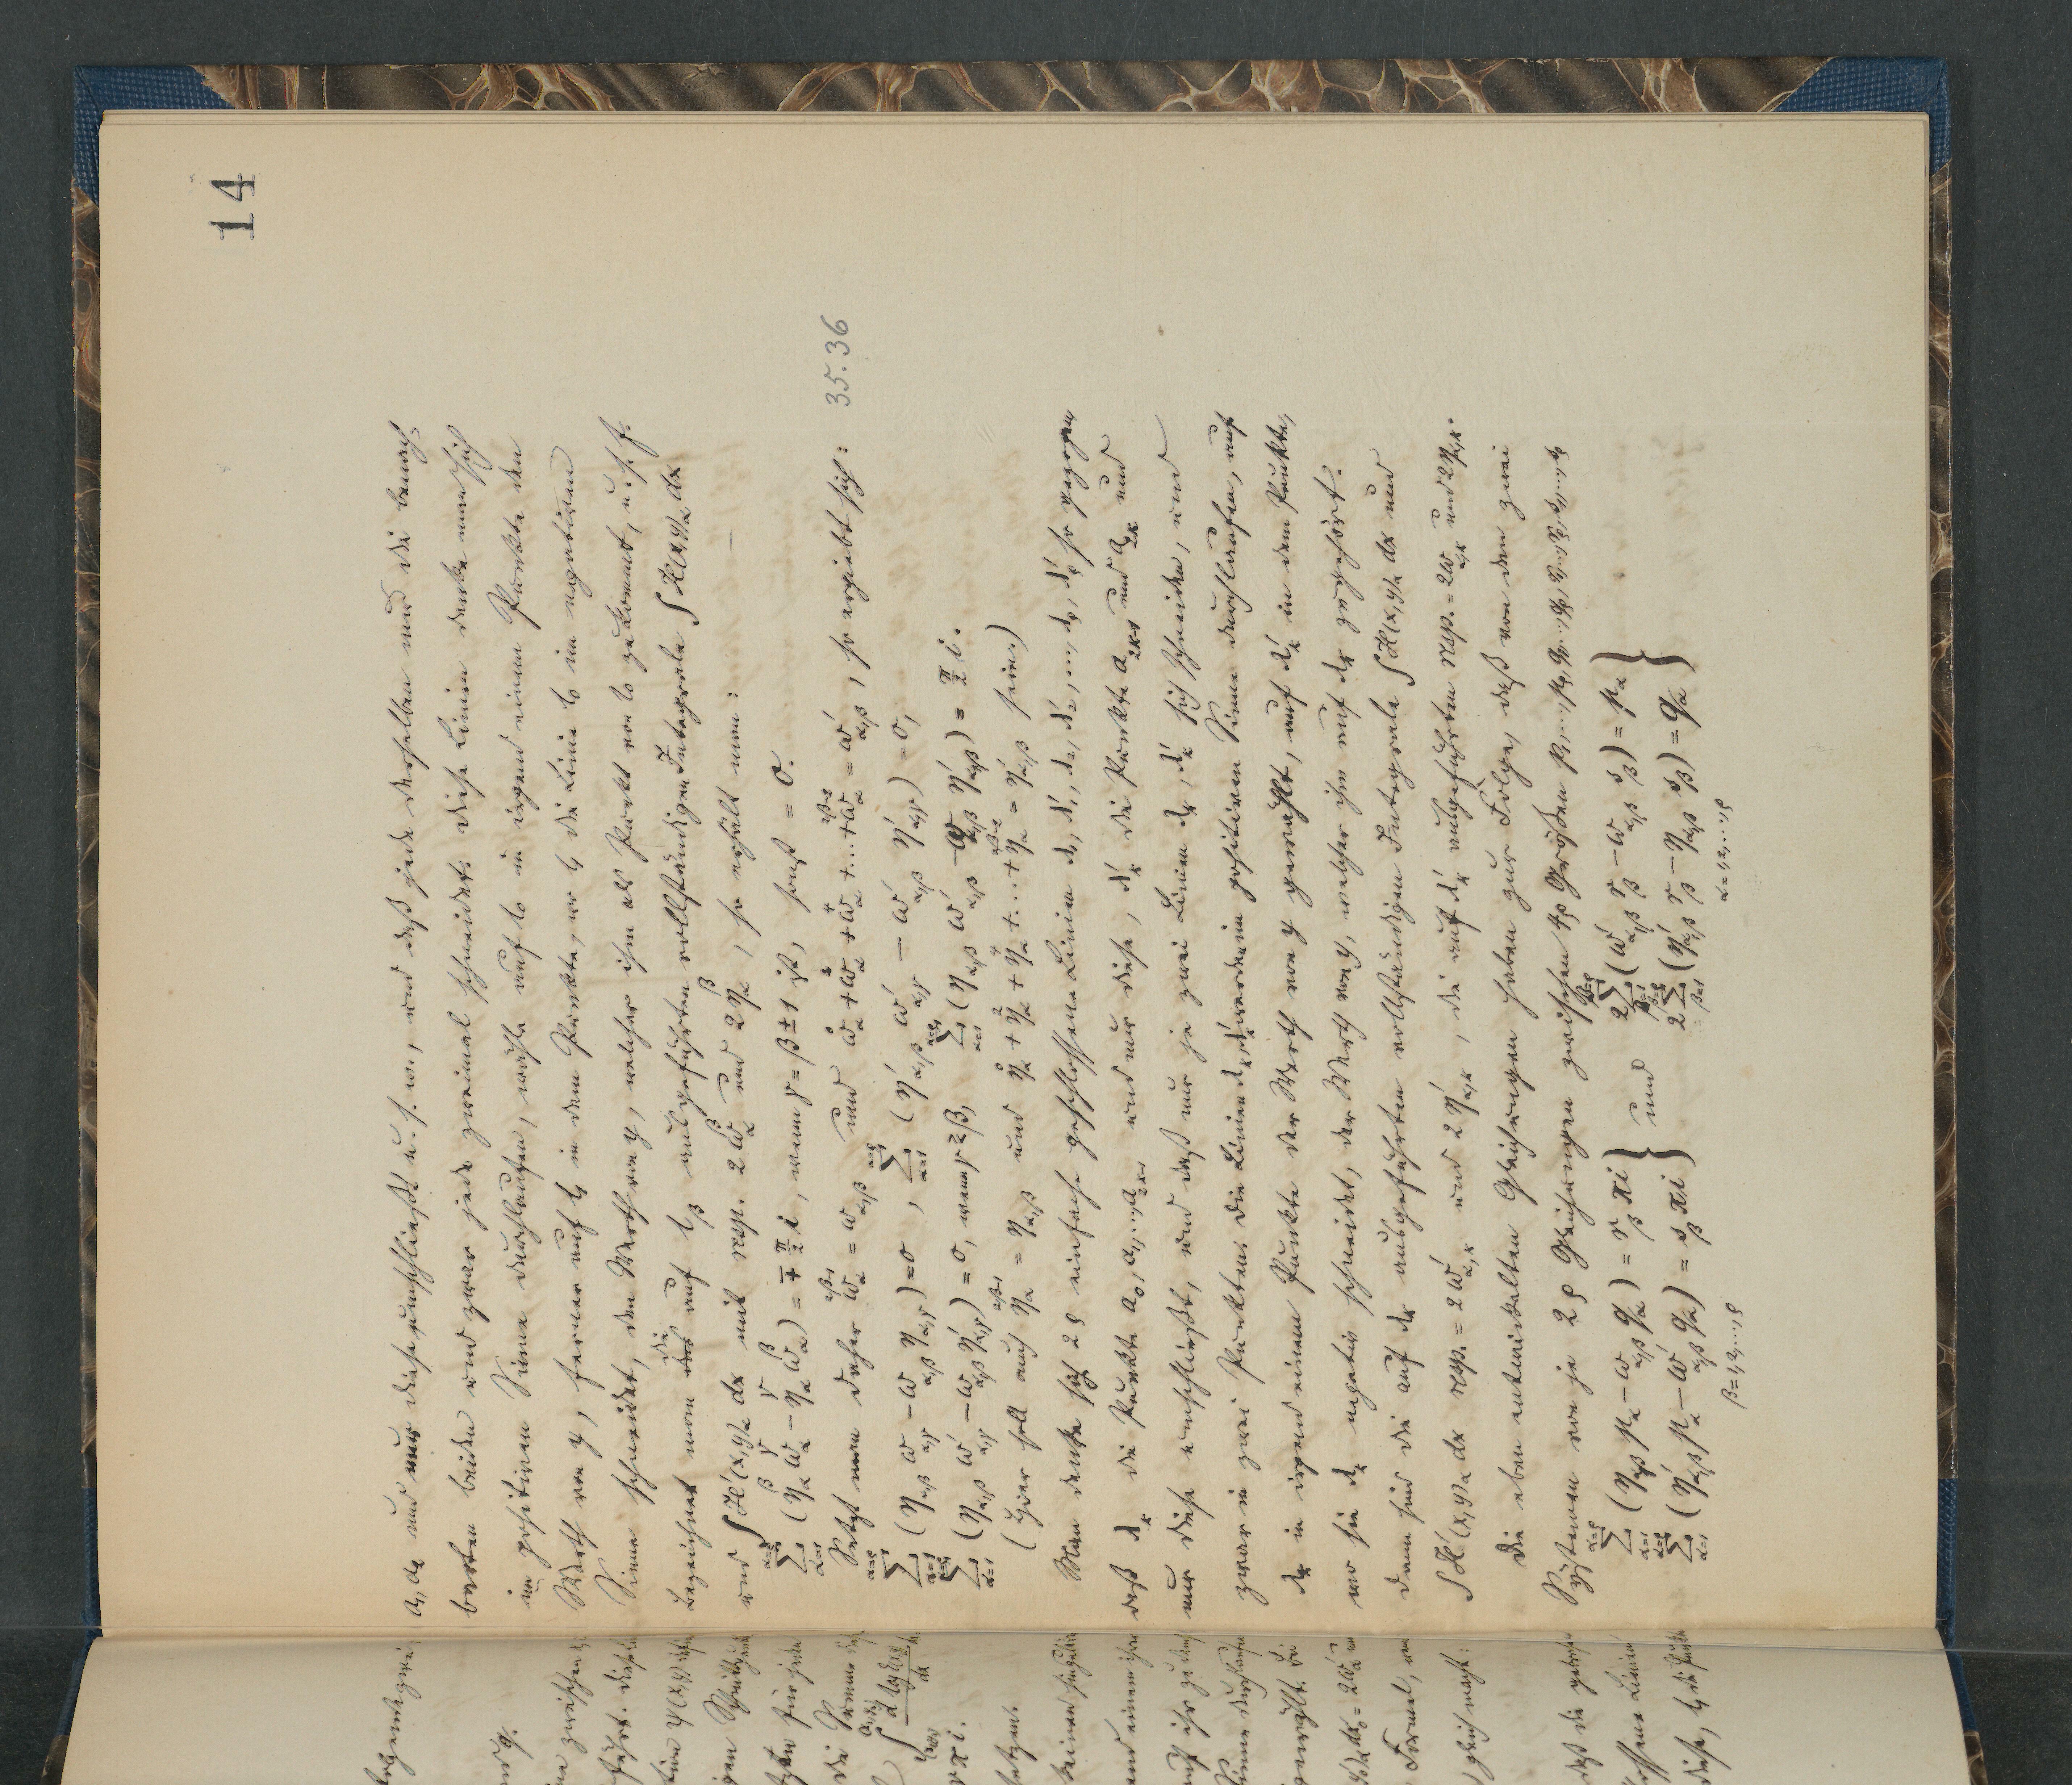 14
a₁, a₂ und nur diese umschließt u. s. w., und daß jede derselben und die benach-
barten beiden und zwar jede zweimal schneidet; diese Linien denke man sich
im positiven Sinne durchlaufen, wähle auf l₀ in irgend einem Punkte den
Werth von y, ferner auf l₁ in dem Punkte, wo l₁ die Linie l₀ im negativen
Sinne schneidet, den Werth von y, welcher ihm als Punkt von l₀ zukommt, u. s. f.
Bezeichnet man die auf l_β ausgeführten vollständigen Integrale ∫H(x,y)_α dx
und ∫H′(x,y)_α dx mit resp. 2ω_α^β und 2η_α^β, so erhält man:
∑_{α=1}^{α=ρ} (η_α^β ω_α^γ − η_α^γ ω_α^β) = ∓ π/2 i, wenn γ = β ± 1 ist, sonst = 0.
Setzt man daher ω_α^{2β−1} = ω_{α,β} und ω_α^0 + ω_α^2 + ω_α^4 + ... + ω_α^{2β−2} = ω′_{α,β}, so ergiebt sich: 35.36
∑_{α=1}^{α=ρ} (η_{α,β} ω_{α,γ} − ω_{α,β} η_{α,γ}) = 0, ∑_{α=1}^{α=ρ} (η′_{α,β} ω′_{α,γ} − ω′_{α,β} η′_{α,γ}) = 0,
∑_{α=1}^{α=ρ} (η_{α,β} ω′_{α,γ} − ω_{α,β} η′_{α,γ}) = 0, wenn γ ≷ β, ∑_{α=1}^{α=ρ} (η_{α,β} ω′_{α,β} − ω_{α,β} η′_{α,β}) = π/2 i.
(Hier soll auch η_α^{2β−1} = η_{α,β} und η_α^0 + η_α^2 + η_α^4 + ... + η_α^{2β−2} = η′_{α,β} sein.)
Man denke sich 2ρ einfache geschlossene Linien d₁, d′₁, d₂, d′₂, ..., d_ρ, d′_ρ so gezogen,
daß d_κ die Punkte a₀, a₁, ..., und nur diese, d′_κ die Punkte a_{2κ−1} und a_{2κ} und
nur diese umschließt, und daß nur je zwei Linien d_κ, d′_κ sich schneiden, und
zwar in zwei Punkten. Die Linien d_κ, d′_κ werden im positiven Sinne durchlaufen, auf
d_κ in irgend einem Punkte der Werth von y gewählt, auf d′_κ in dem Punkte,
wo sie d_κ negativ schneidet, der Werth von y, welcher ihm auf d_κ zugehört.
Dann sind die auf d_κ ausgeführten vollständigen Integrale ∫H(x,y)_α dx und
∫H′(x,y)_α dx resp. = 2ω′_{α,κ} und 2η′_{α,κ}, die auf d′_κ ausgeführten resp. = 2ω_{α,κ} und 2η_{α,κ}.
Die eben entwickelten Gleichungen haben zur Folge, daß von den zwei
Systemen von je 2ρ Gleichungen zwischen 4ρ Größen p₁, ..., p_ρ, q₁, ..., q_ρ, r₁, ..., r_ρ, s₁, ..., s_ρ
∑_{α=1}^{α=ρ} (η_{α,β} p_α − ω_{α,β} q_α) = r_β πi } und 2∑_{β=1}^{β=ρ} (ω′_{α,β} r_β − ω_{α,β} s_β) = p_α }
∑_{α=1}^{α=ρ} (η′_{α,β} p_α − ω′_{α,β} q_α) = s_β πi } 2∑_{β=1}^{β=ρ} (η′_{α,β} r_β − η_{α,β} s_β) = q_α }
β = 1, 2, ..., ρ α = 1, 2, ..., ρ